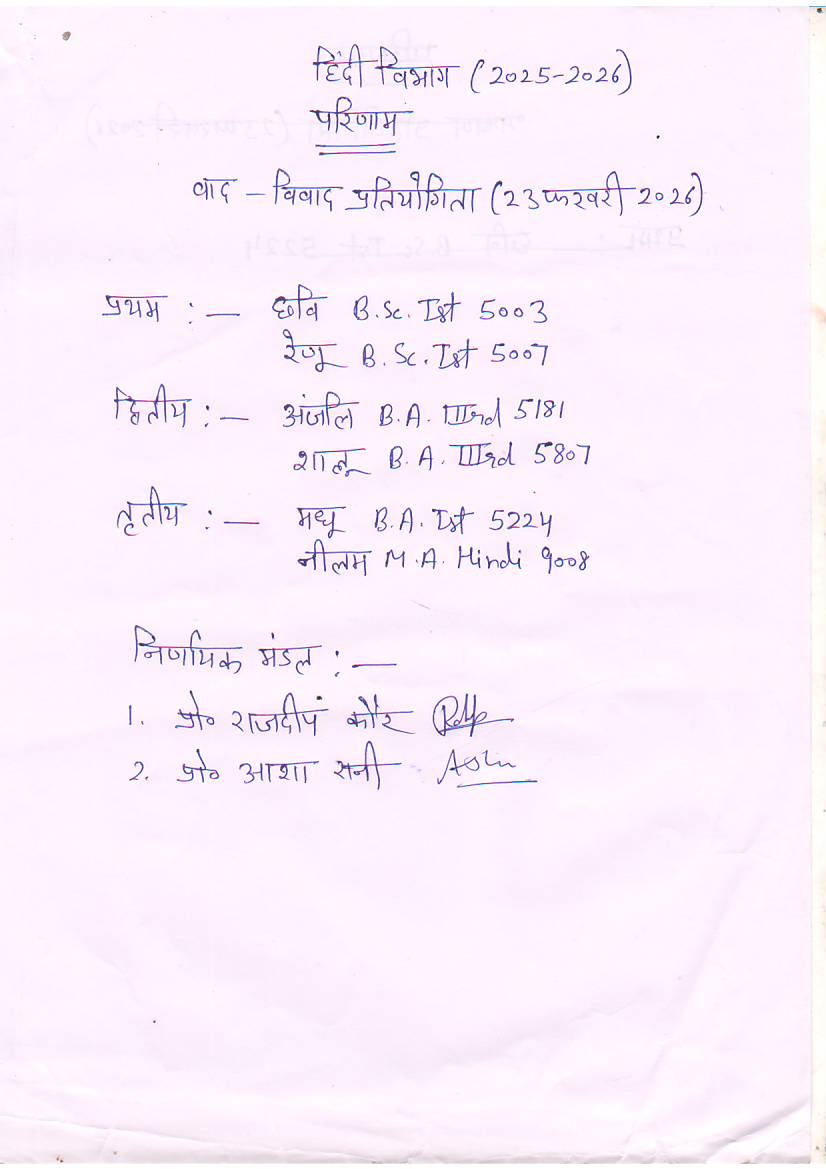 हिंदी विभाग (2025-2026)
परिणाम
वाद - विवाद प्रतियोगिता (23 फरवरी 2026)
प्रथम :- छवि B.Sc. Ist 5003
रेणू B.Sc. Ist 5007
द्वितीय :- अंजलि B.A. IIIrd 5181
शालू B.A. IIIrd 5807
तृतीय :- मधू B.A. Ist 5224
नीलम M.A. Hindi 9008
निर्णायक मंडल :-
1. प्रो० राजदीप कौर
2. प्रो० आशा रानी